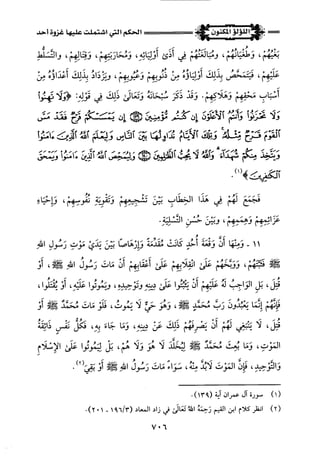 اللؤلؤ المكنون
الحكم التي اشتملت عليها غزوة أحد
بَغْيُهُمْ، وَطُغْيَانُهُمْ، وَمُبَالَغَتُهُمْ فِي أَذَى أَوْلِيَائِهِ، وَمُحَارَبَتِهِمْ، وَقِتَالِهِمْ، وَالتَّسَلُّطِ
عَلَيْهِمْ، فَيَتَمَحَّصُ بِذَلِكَ أَوْلِيَاؤُهُ مِنْ ذُنُوبِهِمْ وَعُيُوبِهِمْ، وَيَزْدَادُ بِذَلِكَ أَعْدَاؤُهُ مِنْ
أَسْبَابِ مَحْقِهِمْ وَهَلَاكِهِمْ. وَقَدْ ذَكَرَ سُبْحَانَهُ وَتَعَالَى ذَلِكَ فِي قَوْلِهِ: ﴿وَلَا تَهِنُوا
وَلَا تَحْزَنُوا وَأَنْتُمُ الْأَعْلَوْنَ إِنْ كُنْتُمْ مُؤْمِنِينَ ۝ إِنْ يَمْسَسْكُمْ قَرْحٌ فَقَدْ مَسَّ
الْقَوْمَ قَرْحٌ مِثْلُهُ وَتِلْكَ الْأَيَّامُ نُدَاوِلُهَا بَيْنَ النَّاسِ وَلِيَعْلَمَ اللَّهُ الَّذِينَ ءَامَنُوا
وَيَتَّخِذَ مِنْكُمْ شُهَدَاءَ وَاللَّهُ لَا يُحِبُّ الظَّالِمِينَ ۝ وَلِيُمَحِّصَ اللَّهُ الَّذِينَ ءَامَنُوا وَيَمْحَقَ
الْكَافِرِينَ﴾(١).
فَجَمَعَ لَهُمْ فِي هَذَا الْخِطَابِ بَيْنَ تَشْجِيعِهِمْ وَتَقْوِيَةِ نُفُوسِهِمْ، وَإِحْيَاءِ
عَزَائِمِهِمْ وَهِمَمِهِمْ، وَبَيْنَ حُسْنِ التَّسْلِيَةِ.
١١ - وَمِنْهَا أَنَّ وَقْعَةَ أُحُدٍ كَانَتْ مُقَدِّمَةً وَإِرْهَاصًا بَيْنَ يَدَيْ مَوْتِ رَسُولِ اللهِ
ﷺ فَثَبَّتَهُمْ، وَوَبَّخَهُمْ عَلَى انْقِلَابِهِمْ عَلَى أَعْقَابِهِمْ أَنْ مَاتَ رَسُولُ اللهِ ﷺ، أَوْ
قُتِلَ، بَلِ الْوَاجِبُ لَهُ عَلَيْهِمْ أَنْ يَثْبُتُوا عَلَى دِينِهِ وَتَوْحِيدِهِ، وَيَمُوتُوا عَلَيْهِ، أَوْ يُقْتَلُوا،
فَإِنَّهُمْ إِنَّمَا يَعْبُدُونَ رَبَّ مُحَمَّدٍ ﷺ، وَهُوَ حَيٌّ لَا يَمُوتُ، فَلَوْ مَاتَ مُحَمَّدٌ ﷺ أَوْ
قُتِلَ، لَا يَنْبَغِي لَهُمْ أَنْ يَصْرِفَهُمْ ذَلِكَ عَنْ دِينِهِ، وَمَا جَاءَ بِهِ، فَكُلُّ نَفْسٍ ذَائِقَةُ
الْمَوْتِ، وَمَا بُعِثَ مُحَمَّدٌ ﷺ لِيُخَلَّدَ لَا هُوَ وَلَا هُمْ، بَلْ لِيَمُوتُوا عَلَى الْإِسْلَامِ
وَالتَّوْحِيدِ، فَإِنَّ الْمَوْتَ لَابُدَّ مِنْهُ، سَوَاءٌ مَاتَ رَسُولُ اللهِ ﷺ أَوْ بَقِيَ(٢).
(١) سورة آل عمران آية (١٣٩).
(٢) انظر كلام ابن القيم رَحِمَهُ اللهُ تَعَالَى في زاد المعاد (١٩٦/٣ - ٢٠١).
٧٠٦